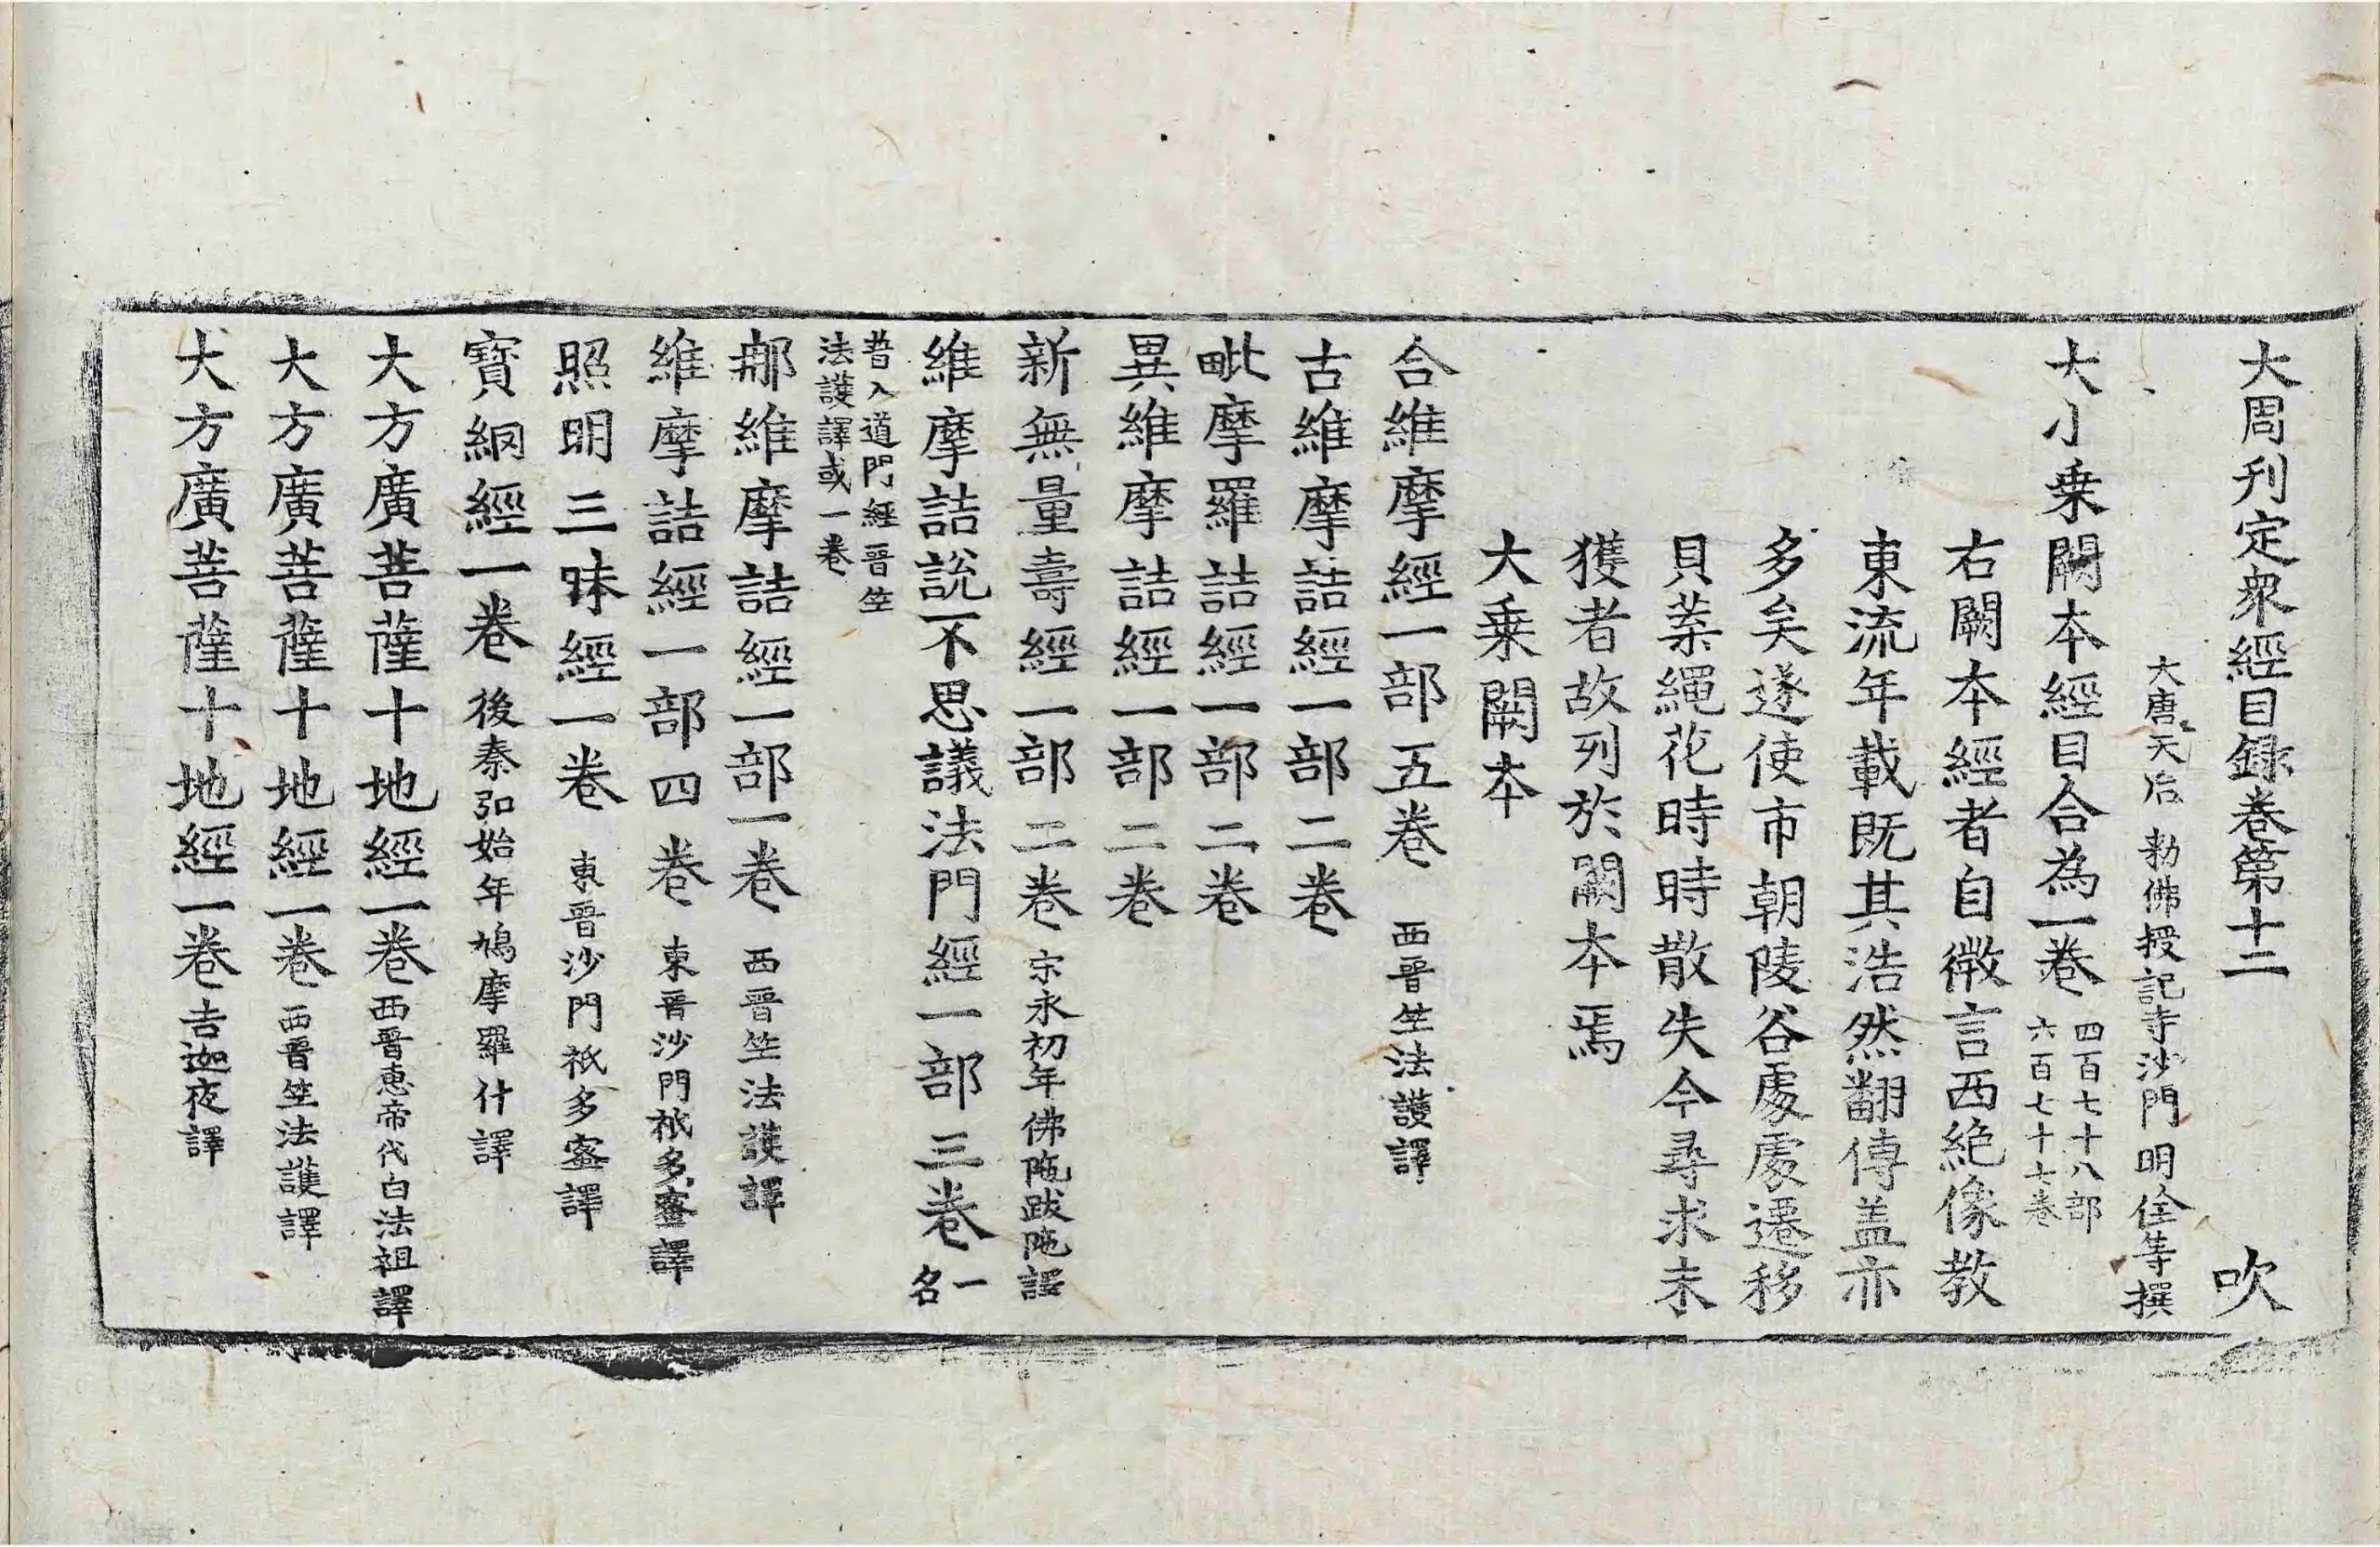 大周刊定衆經目録卷第十二 吹
大唐天后 勅佛授記寺沙門明佺等撰
大小乗闕本經目合為一卷 四百七十八部
六百七十七卷
右闕本經者自微言西絶像教
東流年載既其浩然翻傳盖亦
多矣遂使市朝陵谷處處遷移
貝葉繩花時時散失今尋求未
獲者故列於闕本焉
大乗闕本
合維摩經一部五卷 西晉竺法護譯
古維摩詰經一部二卷
毗摩羅詰經一部二卷
異維摩詰經一部二卷
新無量壽經一部二卷 宗永初年佛陁跋陁譯
維摩詰說不思議法門經一部三卷 一名
普入道門經晉竺
法護譯或一卷
那維摩詰經一部一卷 西晉竺法護譯
維摩詰經一部四卷 東晉沙門祇多蜜譯
照明三昧經一卷 東晉沙門祇多蜜譯
寶網經一卷 後秦弘始年鳩摩羅什譯
大方廣菩薩十地經一卷 西晉惠帝代白法祖譯
大方廣菩薩十地經一卷 西晉竺法護譯
大方廣菩薩十地經一卷 吉迦夜譯